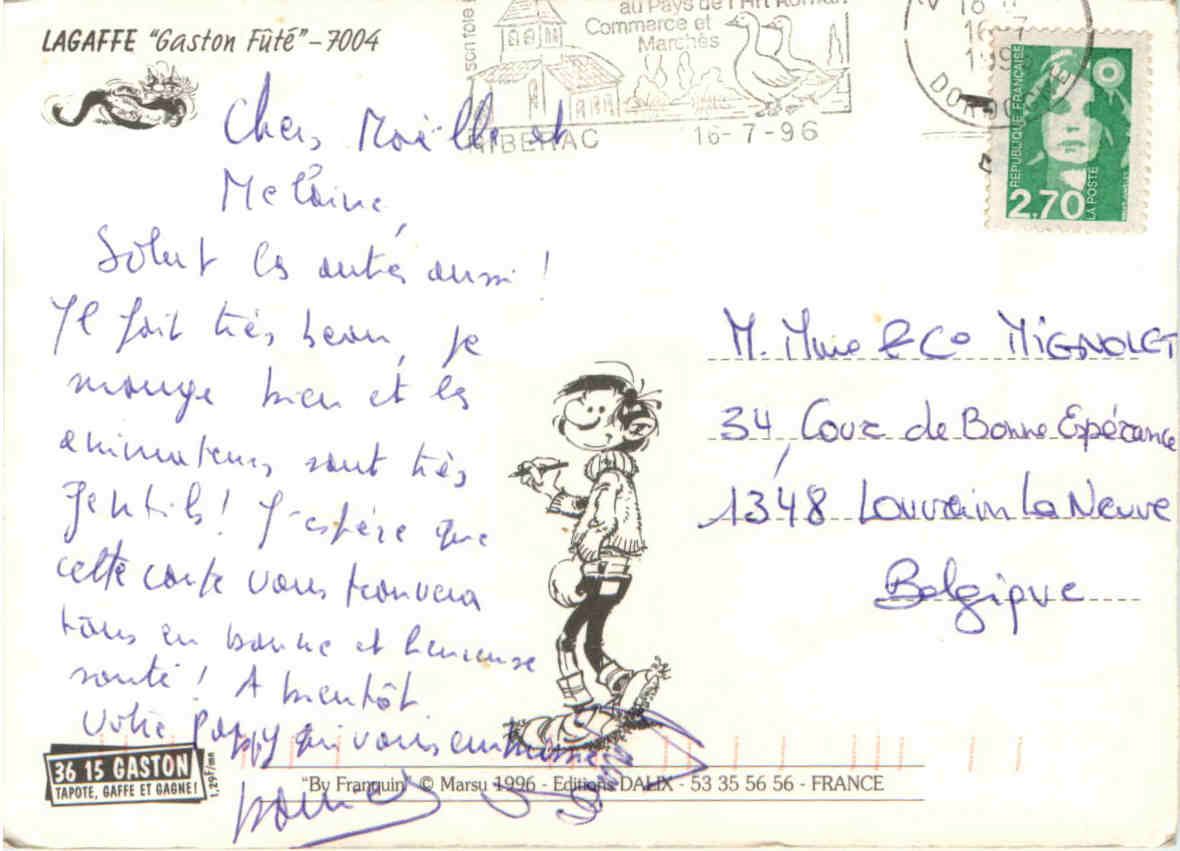 LAGAFFE "Gaston Fûté" - 7004
son
au Pays de l'Art Roman
Commerce et
Marchés
RIBERAC 16-7-96
18 H
16-7
199
DORDOGNE
REPUBLIQUE FRANÇAISE
2,70
LA POSTE
Chers et
Melaine,
Salut les autres aussi !
Il fait très beau, je
mange bien et les
animateurs sont très
gentils ! J'espère que
cette carte vous trouvera
tous en bonne et heureuse
santé ! A bientôt
Votre Pappy qui vous embrasse
M. Mme & Co MIGNOLET
34, Cour de Bonne Espérance
1348 Louvain La Neuve
Belgique
36 15 GASTON
TAPOTE, GAFFE ET GAGNE!
1,29F/mn
"By Franquin" © Marsu 1996 - Editions DALIX - 53 35 56 56 - FRANCE